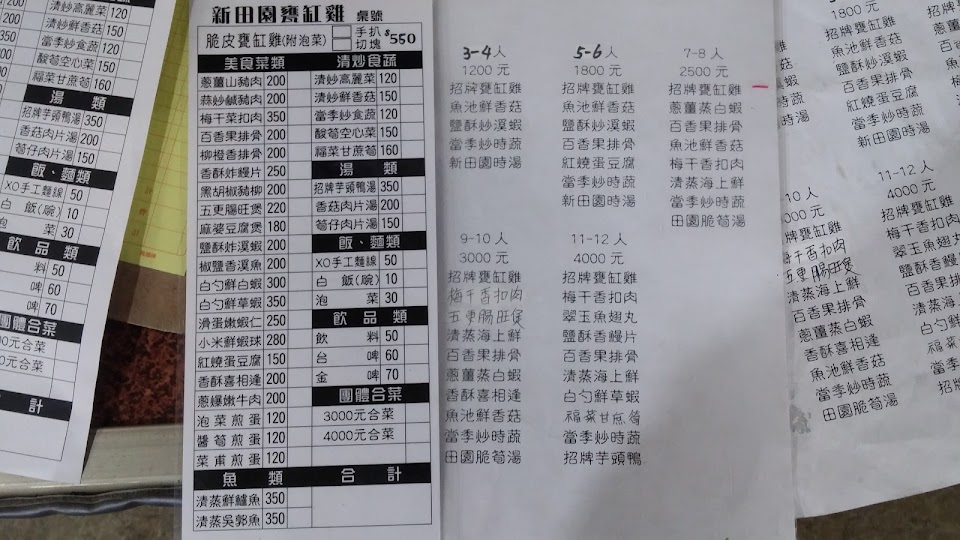 新田園甕缸雞 桌號
脆皮甕缸雞(附泡菜) 手扒 切塊 $550
美食菜類
蔥薑山豬肉 200
蒜炒鹹豬肉 200
梅干菜扣肉 350
百香果排骨 200
柳橙香排骨 200
香酥炸鰻片 250
黑胡椒豬柳 200
五更腸旺煲 220
麻婆豆腐煲 180
鹽酥炸溪蝦 200
椒鹽香溪魚 200
白勺鮮白蝦 300
白勺鮮草蝦 350
滑蛋嫩蝦仁 250
小米鮮蝦球 280
紅燒蛋豆腐 150
香酥喜相逢 200
蔥爆嫩牛肉 200
泡菜煎蛋 120
醬筍煎蛋 120
菜甫煎蛋 120
魚類
清蒸鮮鱸魚 350
清蒸吳郭魚 350
清炒食蔬
清炒高麗菜 120
清炒鮮香菇 150
當季炒食蔬 120
酸筍空心菜 150
福菜甘蔗筍 160
湯類
招牌芋頭鴨湯 350
香菇肉片湯 200
筍仔肉片湯 150
飯、麵類
XO手工麵線 50
白飯(碗) 10
泡菜 30
飲品類
飲料 50
台啤 60
金啤 70
團體合菜
3000元合菜
4000元合菜
合計
3-4人
1200元
招牌甕缸雞
魚池鮮香菇
鹽酥炒溪蝦
當季炒時蔬
新田園時湯
5-6人
1800元
招牌甕缸雞
魚池鮮香菇
鹽酥炒溪蝦
紅燒蛋豆腐
當季炒時蔬
新田園時湯
7-8人
2500元
招牌甕缸雞
蔥薑蒸白蝦
百香果排骨
魚池鮮香菇
梅干香扣肉
清蒸海上鮮
當季炒時蔬
田園脆筍湯
9-10人
3000元
招牌甕缸雞
梅干香扣肉
五更腸旺煲
清蒸海上鮮
百香果排骨
蔥薑蒸白蝦
香酥喜相逢
魚池鮮香菇
當季炒時蔬
田園脆筍湯
11-12人
4000元
招牌甕缸雞
梅干香扣肉
翠玉魚翅丸
鹽酥香鰻片
百香果排骨
清蒸海上鮮
白勺鮮草蝦
福菜甘蔗筍
當季炒時蔬
招牌芋頭鴨
清炒高麗菜 120
清炒鮮香菇 150
當季炒食蔬 120
酸筍空心菜 150
福菜甘蔗筍 160
湯類
招牌芋頭鴨湯 350
香菇肉片湯 200
筍仔肉片湯 150
飯、麵類
XO手工麵線 50
白飯(碗) 10
菜 30
飲品類
料 50
啤 60
啤 70
團體合菜
元合菜
元合菜
計
1800元
招牌甕缸雞
魚池鮮香菇
鹽酥炒溪蝦
百香果排骨
紅燒蛋豆腐
當季炒時蔬
新田園時湯
10人
元
梅干香扣肉
五更腸旺煲
清蒸海上鮮
百香果排骨
蔥薑蒸白蝦
香酥喜相逢
魚池鮮香菇
當季炒時蔬
田園脆筍湯
11-12人
4000元
招牌甕缸
梅干香扣
翠玉魚翅
鹽酥香
百香果
清蒸海
白勺鮮
福菜
當季
招牌